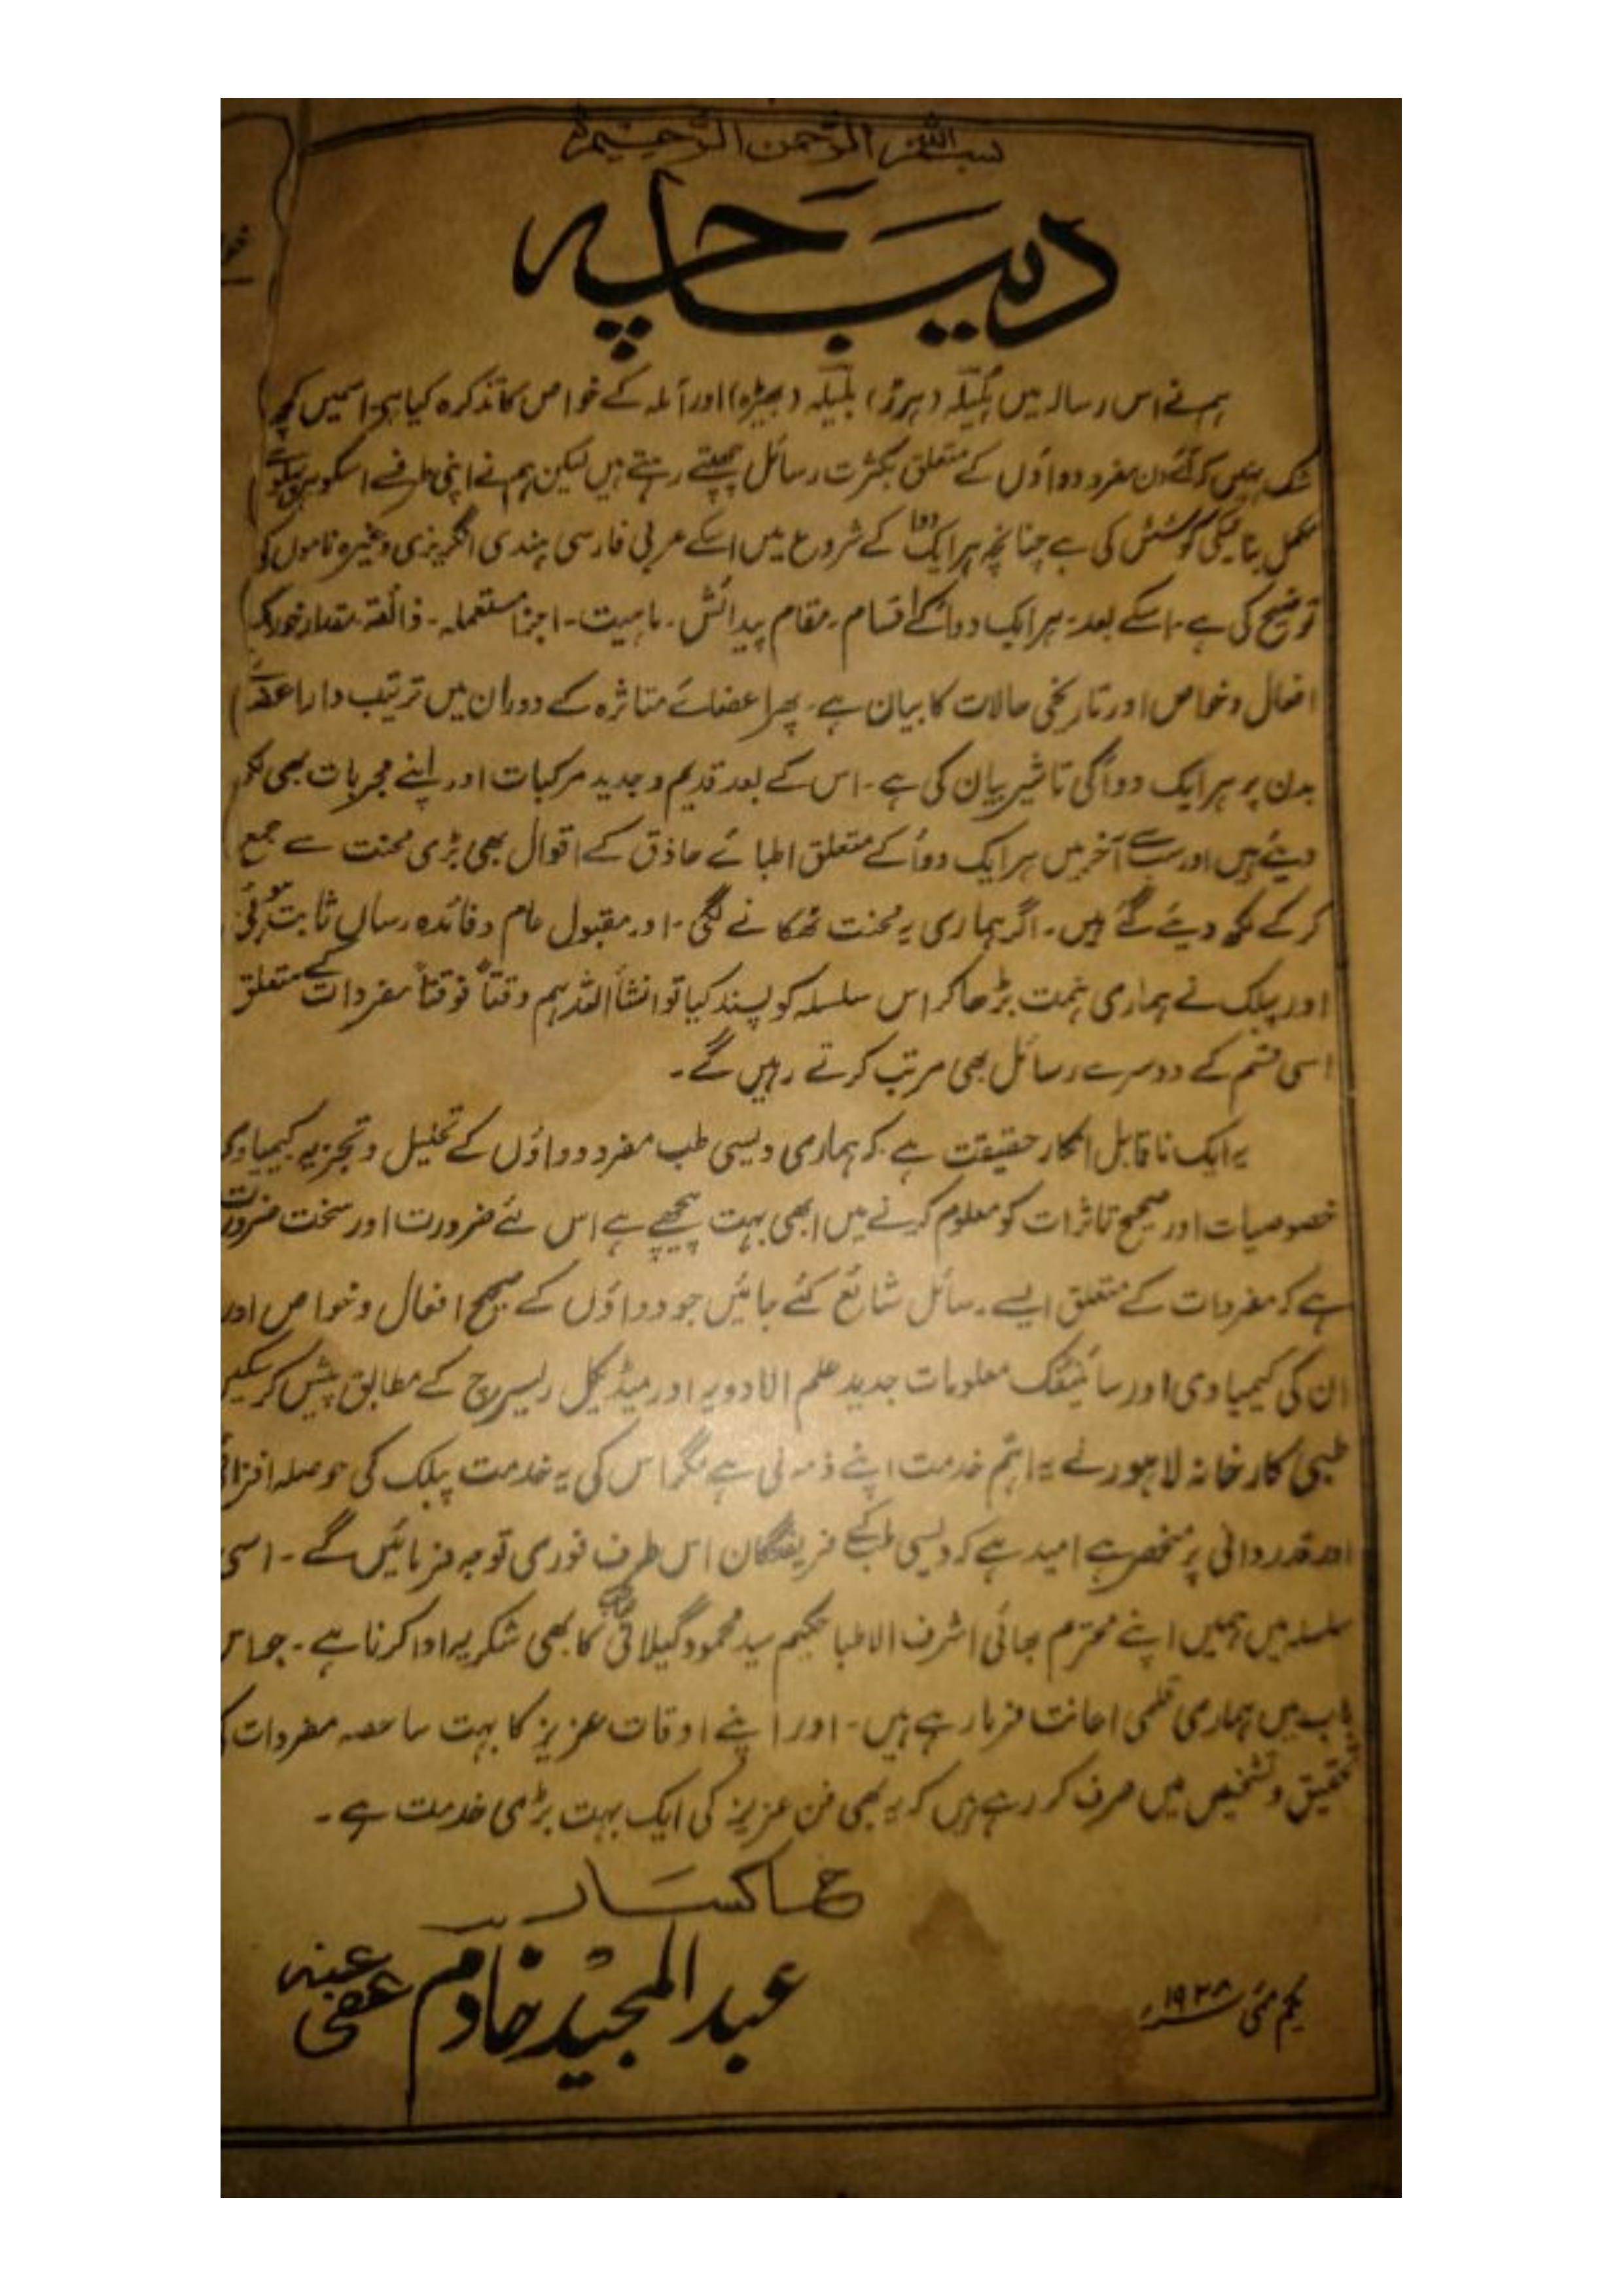 بسم اللہ الرحمن الرحیم
دیباچہ
ہم نے اس رسالہ میں ہلیلہ (ہرڑ) بلیلہ (بہیڑہ) اور آملہ کے خواص کا تذکرہ کیا ہے اسمیں کچھ
شک نہیں کہ آئے دن مفرد دواؤں کے متعلق بکثرت رسائل چھپتے رہتے ہیں لیکن ہم نے اپنی طرف سے اسکو ہر پہلو سے
مکمل بنانیکی کوشش کی ہے چنانچہ ہر ایک دوا کے شروع میں اسکے عربی فارسی ہندی انگریزی وغیرہ ناموں کی
توضیح کی ہے۔ اسکے بعد۔ ہر ایک دوا کے اقسام۔ مقام پیدائش۔ ماہیت۔ اجزا مستعملہ۔ ذائقہ۔ مقدار خوراک
افعال و خواص اور تاریخی حالات کا بیان ہے۔ پھر اعضائے متاثرہ کے دوران میں ترتیب وار اعضائے
بدن پر ہر ایک دوا کی تاثیر بیان کی ہے۔ اس کے بعد قدیم و جدید مرکبات اور اپنے مجربات بھی لکھ
دیئے ہیں اور سب سے آخر میں ہر ایک دوا کے متعلق اطبائے حاذق کے اقوال بھی بڑی محنت سے جمع
کر کے لکھ دیئے گئے ہیں۔ اگر ہماری یہ محنت ٹھکانے لگی۔ اور مقبول عام و فائدہ رساں ثابت ہوئی
اور پبلک نے ہماری ہمت بڑھا کر اس سلسلہ کو پسند کیا تو انشأ اللہ ہم وقتاً فوقتاً مفردات کے متعلق
اسی قسم کے دوسرے رسائل بھی مرتب کرتے رہیں گے۔
یہ ایک ناقابل انکار حقیقت ہے کہ ہماری دیسی طب مفرد دواؤں کے تحلیل و تجزیہ کیمیاوی
خصوصیات اور صحیح تاثرات کو معلوم کرنے میں ابھی بہت پیچھے ہے اس لئے ضرورت اور سخت ضرورت
ہے کہ مفردات کے متعلق ایسے رسائل شائع کئے جائیں جو دواؤں کے صحیح افعال و خواص اور
ان کی کیمیاوی اور سائینٹفک معلومات جدید علم الادویہ اور میڈیکل ریسرچ کے مطابق پیش کر سکیں
طبی کارخانہ لاہور نے یہ اہم خدمت اپنے ذمہ لی ہے مگر اس کی یہ خدمت پبلک کی حوصلہ افزائی
اور قدردانی پر منحصر ہے امید ہے کہ دیسی طب کے فریفتگان اس طرف فوری توجہ فرمائیں گے۔ اسی
سلسلہ میں ہمیں اپنے محترم بھائی اشرف الاطبا حکیم سید محمود گیلانی صاحب کا بھی شکریہ ادا کرنا ہے۔ جو اس
باب میں ہماری قلمی اعانت فرما رہے ہیں۔ اور اپنے اوقات عزیز کا بہت سا حصہ مفردات کی
تحقیق و تشخیص میں صرف کر رہے ہیں کہ یہ بھی فن عزیز کی ایک بہت بڑی خدمت ہے۔
خاکسار
عبد المجید خادم عفی عنہ
یکم مئی ۱۹۳۸ء